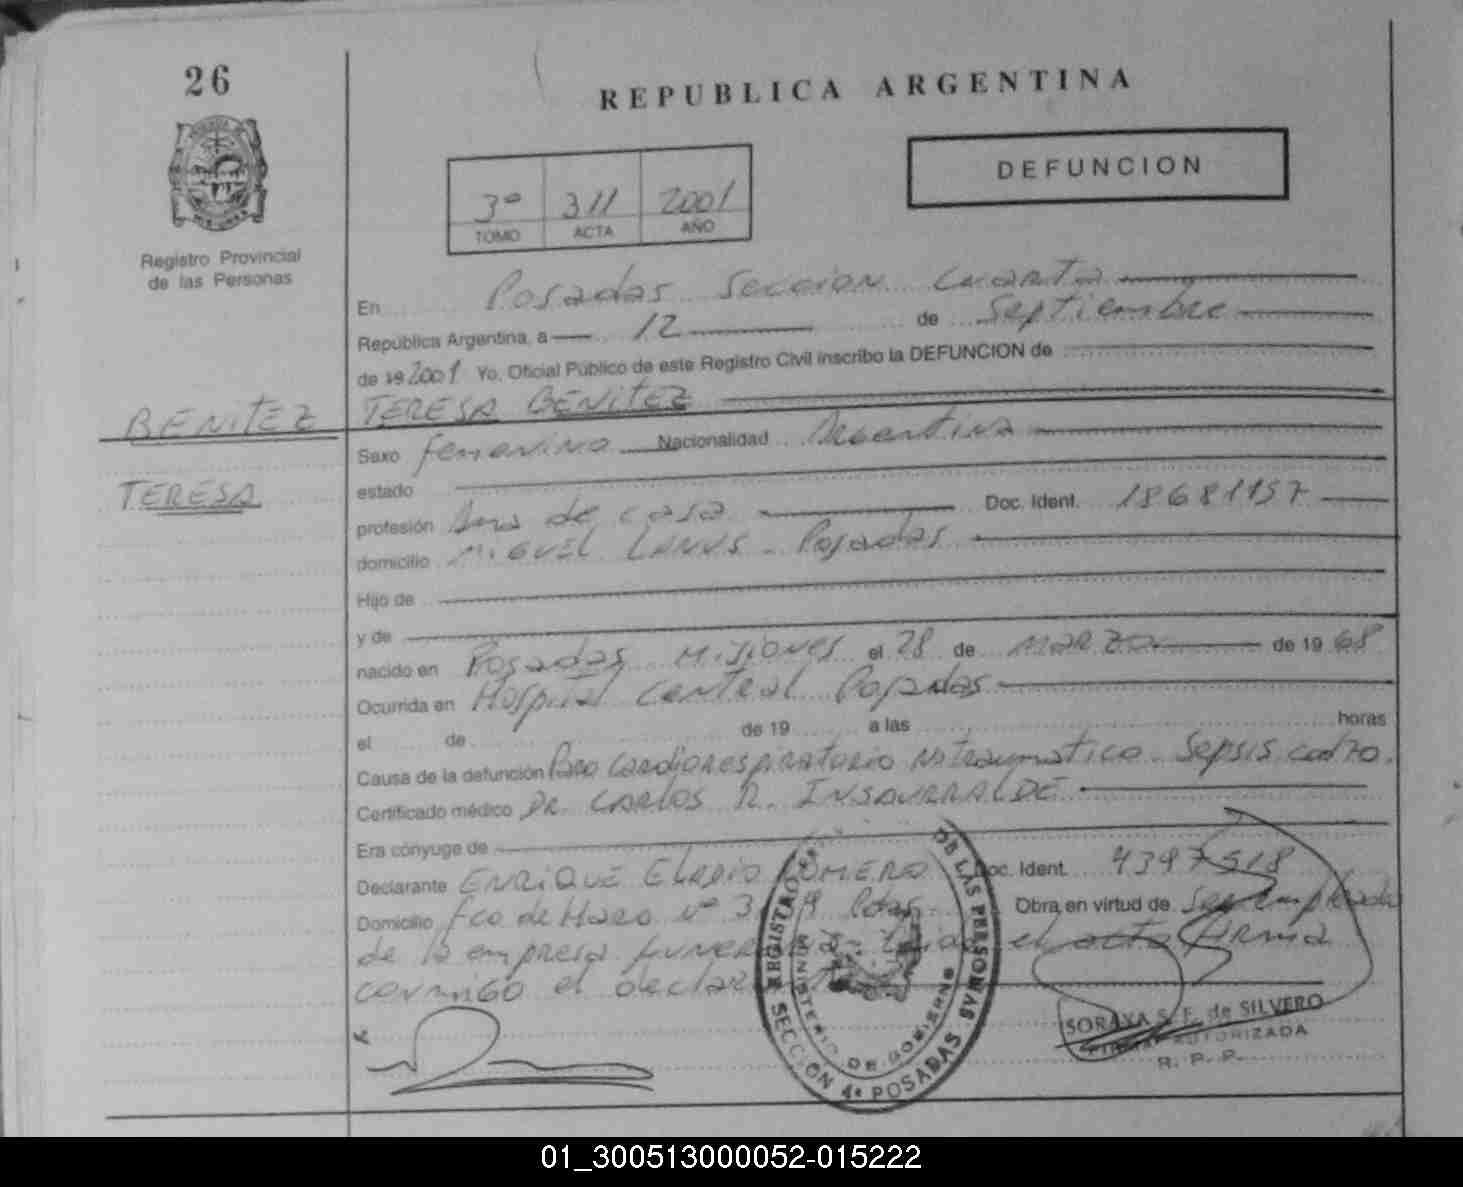 26
REPUBLICA ARGENTINA
DEFUNCION
3º 311 2001
TOMO ACTA AÑO
Registro Provincial
de las Personas
En Posadas Seccion Cuarta
República Argentina, a 12 de Septiembre
de 19 2001 Yo, Oficial Público de este Registro Civil inscribo la DEFUNCION de
BENITEZ TERESA BENITEZ
Sexo femenino Nacionalidad Argentina
estado
TERESA
profesión Ama de casa Doc. Ident. 18681157
domicilio MIGUEL LANUS - Posadas
Hijo de
y de
nacido en Posadas Misiones el 28 de MARZO de 19 68
Ocurrida en Hospital Central Posadas
el de de 19 a las horas
Causa de la defunción Paro Cardiorespiratorio no traumatico - Sepsis
Certificado médico DR. CARLOS R. INSAURRALDE
Era cónyuge de
Declarante ENRIQUE Eladio ROMERO Doc. Ident. 4397518
Domicilio Fco de Haro nº Pdas. Obra en virtud de Ser empleado
de la empresa funeraria el acta firma
conmigo el
REGISTRO DE LAS PERSONAS
MINISTERIO DE GOBIERNO
SECCION 4ª POSADAS
SORAYA S. F. de SILVERO
FIRMA AUTORIZADA
R. P. P.
01_300513000052-015222